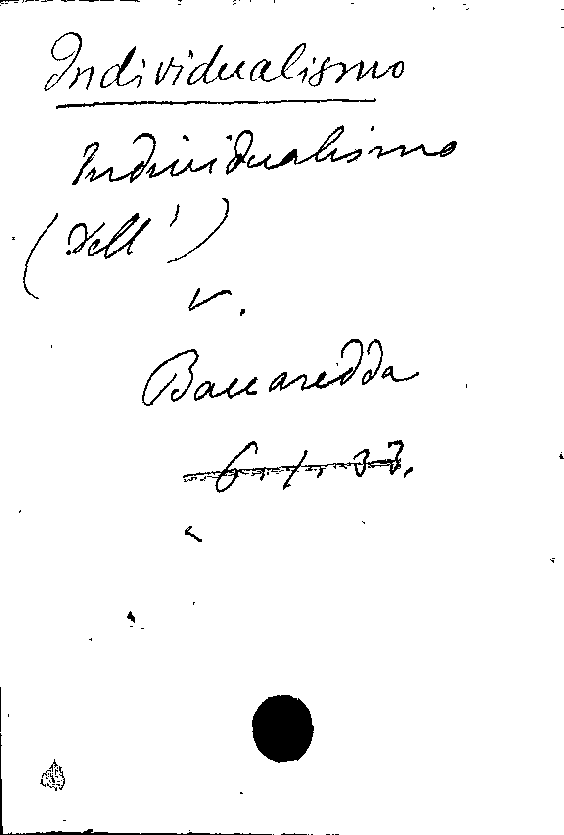 Individualismo
Individualismo
(Dell')
v.
Baccaredda
6.1.33.